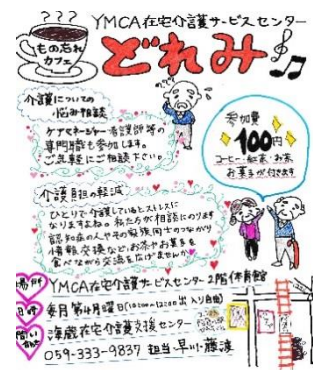 ???
YMCA在宅介護サービスセンター
もの忘れ
カフェ
どれみ
介護についての
悩み相談
ケアマネージャー・看護師等の
専門職も参加します。
ご気軽にご相談下さい。
参加費
100円
コーヒー・紅茶・お茶
お菓子が付きます
介護負担の軽減
ひとりで介護しているとストレスに
なりますよね。私たちが相談にのります
認知症の人やその家族同士のつながり
情報交換など、お茶やお菓子を
食べながら交流を広げませんか
場所 YMCA在宅介護サービスセンター2階体育館
日時 毎月第4月曜日(10:00~12:00出入り自由)
問い 海蔵在宅介護支援センター
059-333-9837 担当 早川・藤